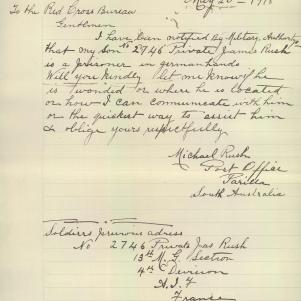 May 20 - 1918
To the Red Cross Bureau
Gentlemen
I have been notified By Military Authority
that my son No 2746 Private James Rush
is a prisoner in german hands
Will you kindly let me know if he
is wounded or where he is located
or how I can communicate with him
or the quickest way to assist him
& oblige yours respectfully
Michael Rush
Port Office
Parilla
South Australia
Soldiers previous adress
No 2746 Private Jas Rush
13th M. G. Section
4th Division
A. I. F
France